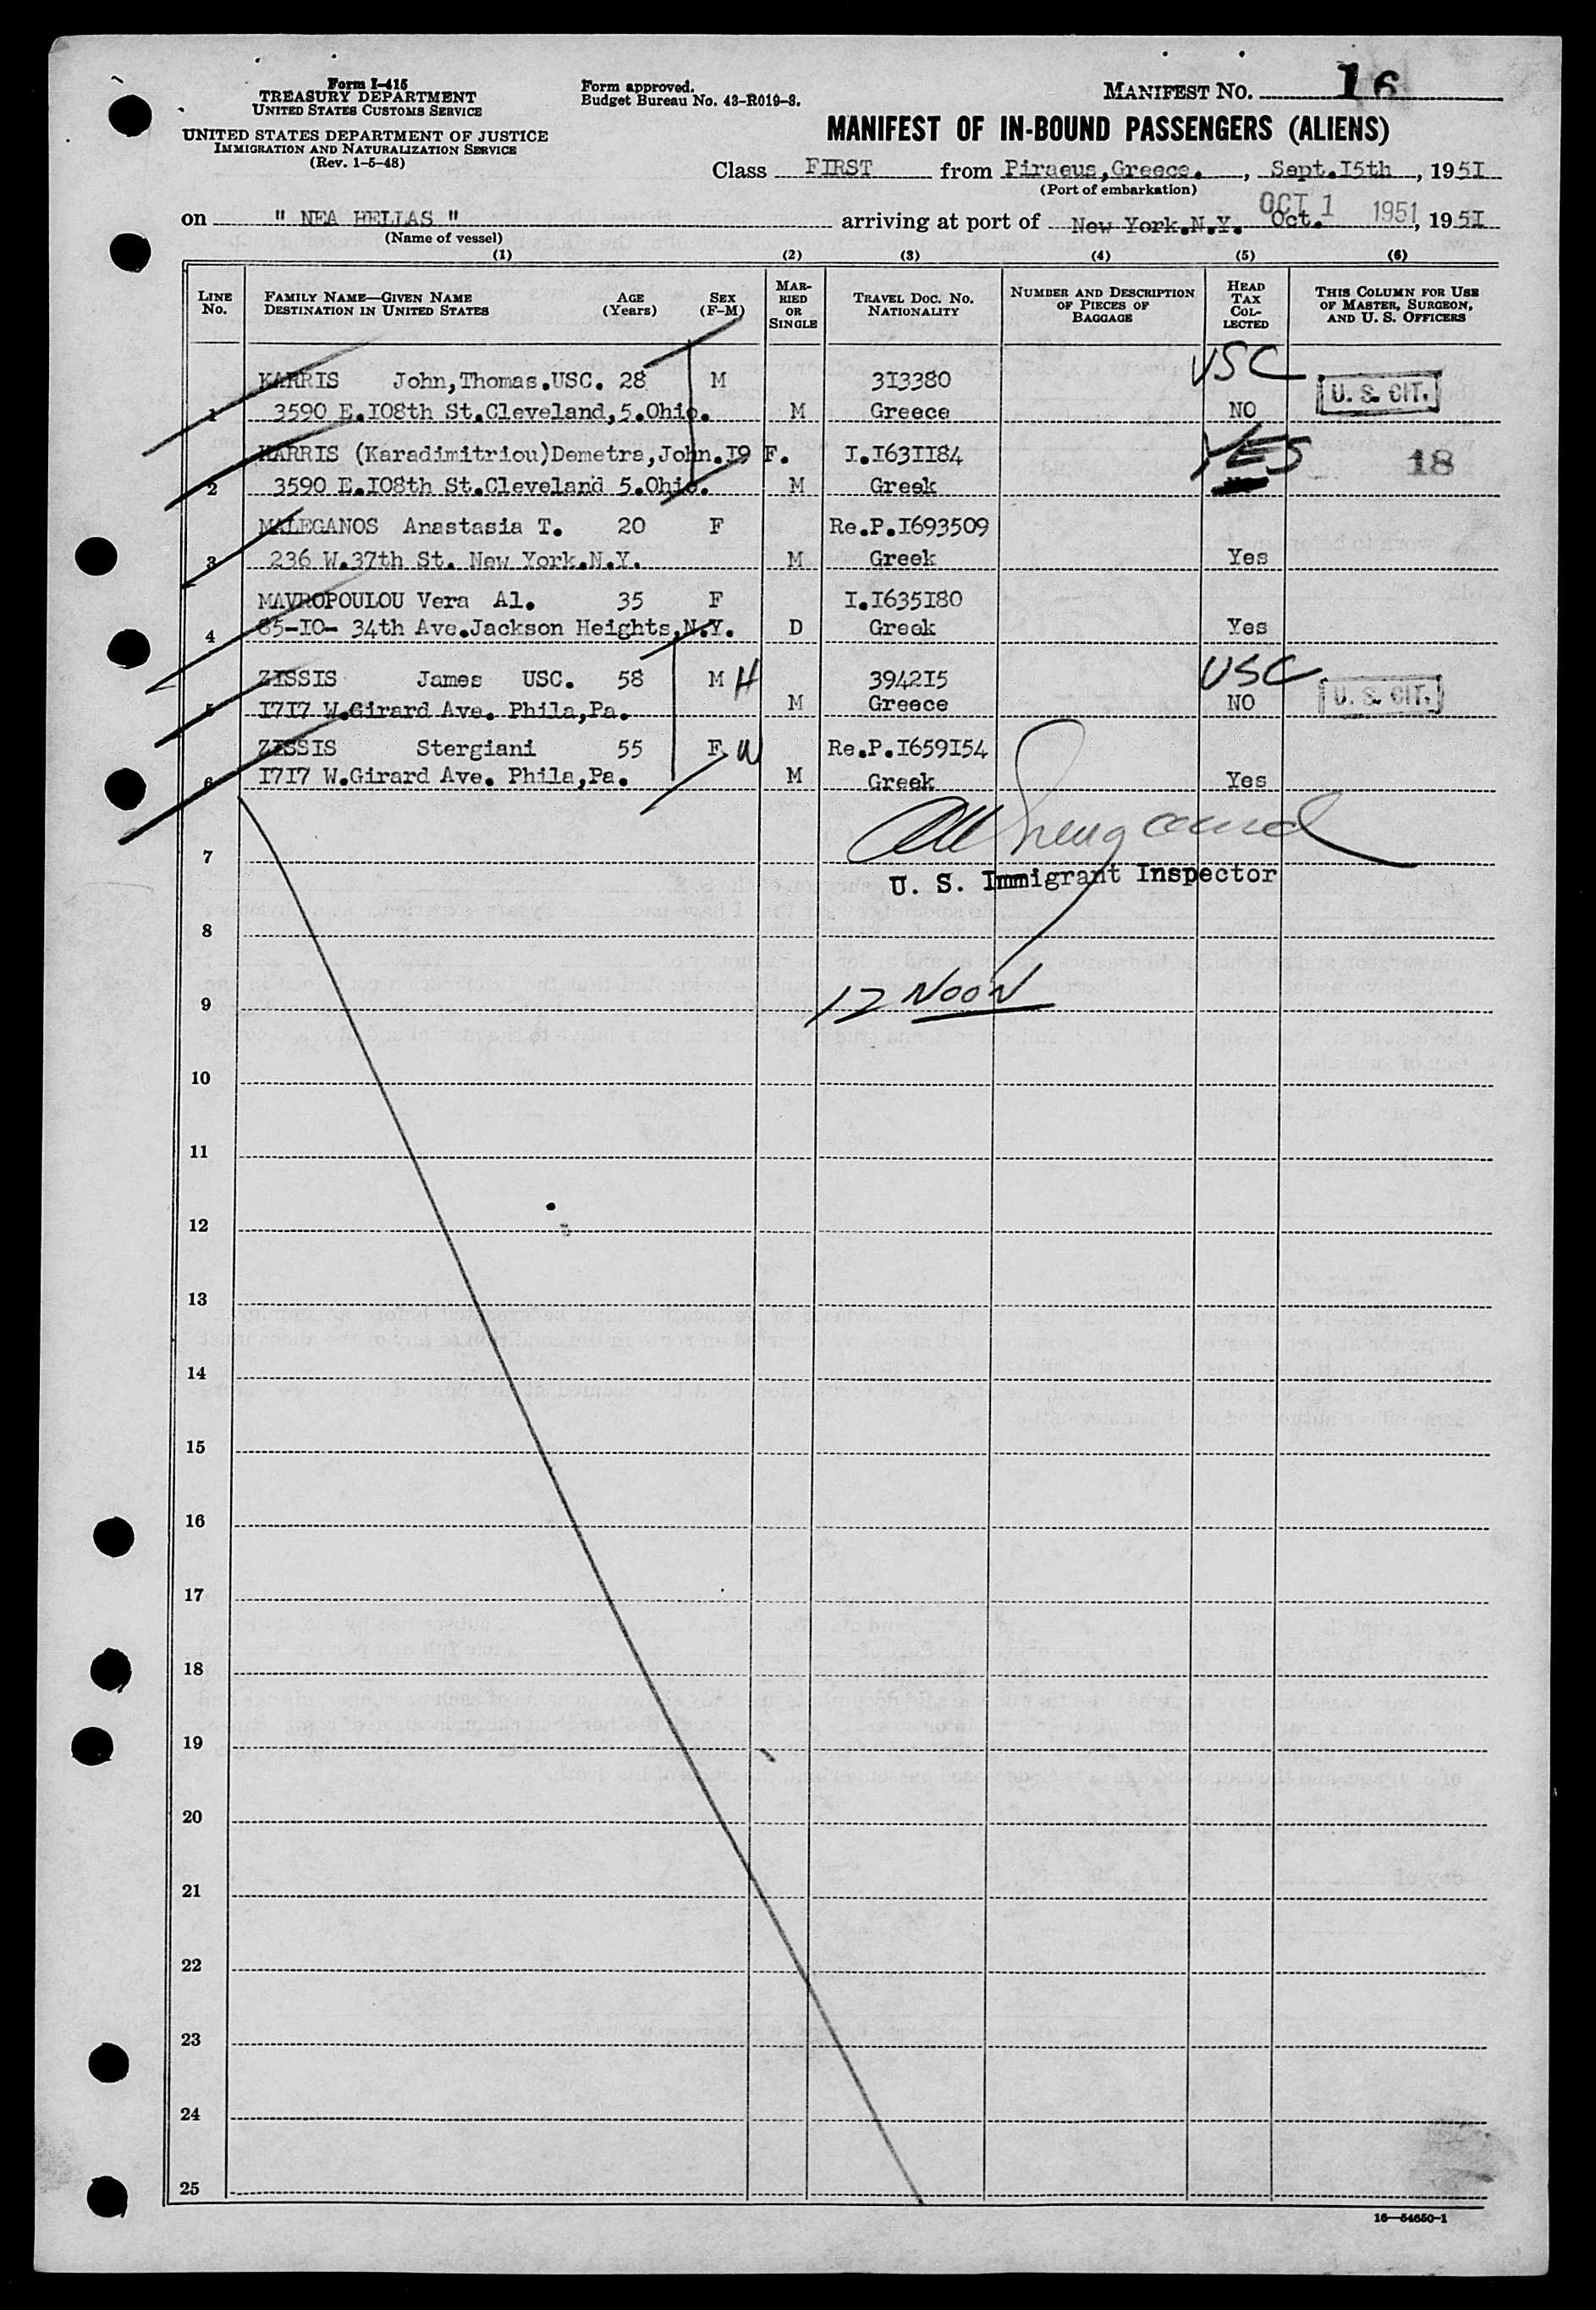 Form I-415
TREASURY DEPARTMENT
UNITED STATES CUSTOMS SERVICE
UNITED STATES DEPARTMENT OF JUSTICE
IMMIGRATION AND NATURALIZATION SERVICE
(Rev. 1-5-48)
Form approved.
Budget Bureau No. 43-R019-3.
MANIFEST NO. 16
MANIFEST OF IN-BOUND PASSENGERS (ALIENS)
Class FIRST from Piraeus,Greece. , Sept.I5th , 195I
(Port of embarkation)
on " NEA HELLAS " arriving at port of New York.N.Y. Oct. , 195I
OCT 1 1951
(Name of vessel)
(1) (2) (3) (4) (5) (6)
LINE NO. FAMILY NAME—GIVEN NAME DESTINATION IN UNITED STATES AGE (Years) SEX (F-M) MARRIED OR SINGLE TRAVEL DOC. NO. NATIONALITY NUMBER AND DESCRIPTION OF PIECES OF BAGGAGE HEAD TAX COLLECTED THIS COLUMN FOR USE OF MASTER, SURGEON, AND U. S. OFFICERS
KARRIS John,Thomas.USC. 28 M 3I3380 USC U. S. CIT.
1 3590 E.I08th St.Cleveland,5.Ohio. M Greece NO
KARRIS (Karadimitriou)Demetra,John.I9 F. I.I63II84 YES 18
2 3590 E.I08th St.Cleveland 5.Ohio. M Greek
MALEGANOS Anastasia T. 20 F Re.P.I693509
3 236 W.37th St. New York.N.Y. M Greek Yes
MAVROPOULOU Vera Al. 35 F I.I635I80
4 85-IO- 34th Ave.Jackson Heights,N.Y. D Greek Yes
ZISSIS James USC. 58 M H 3942I5 USC U. S. CIT.
5 I7I7 W.Girard Ave. Phila,Pa. M Greece NO
ZISSIS Stergiani 55 F. W Re.P.I659I54
6 I7I7 W.Girard Ave. Phila,Pa. M Greek Yes
7
U. S. Immigrant Inspector
8
12 NOON
9
10
11
12
13
14
15
16
17
18
19
20
21
22
23
24
25
16—54650-1